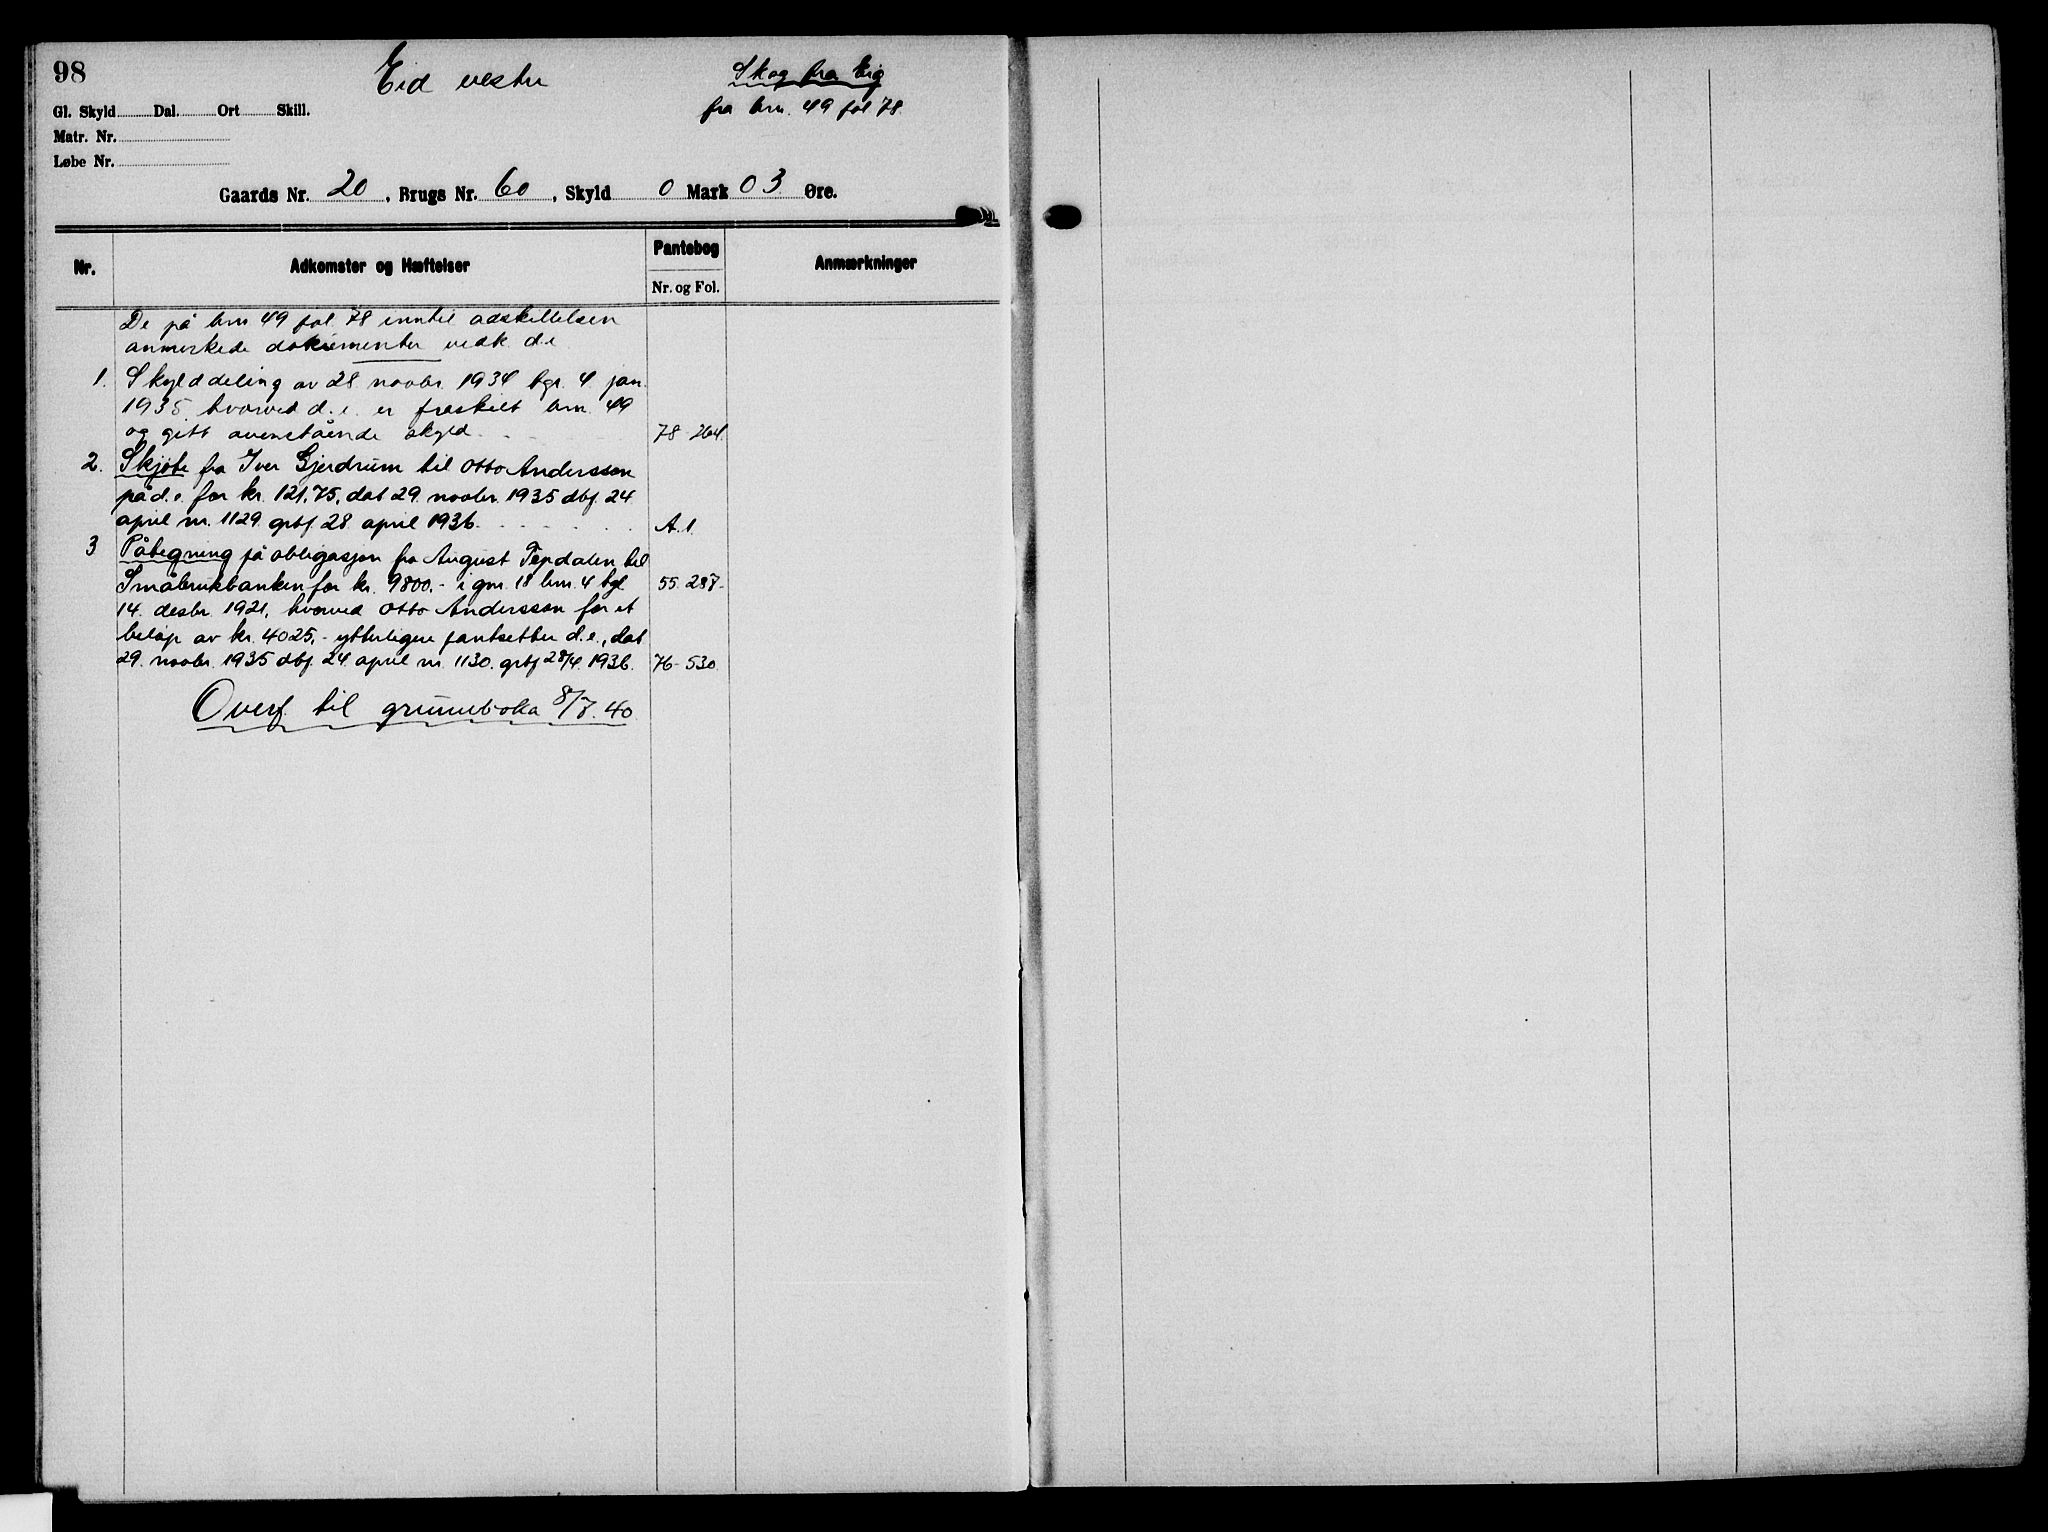 98
Eid vestre
Skog fra Eig
fra brn. 49 fol 78.
Gl. Skyld Dal. Ort Skill.
Matr. Nr.
Løbe Nr.
Gaards Nr. 20, Brugs Nr. 60, Skyld 0 Mark 03 Øre.
Nr. Adkomster og Hæftelser Pantebog Anmærkninger
Nr. og Fol.
De på brn 49 fol 78 inntil adskillelsen
anmerkede dokumenter vedk. d.e.
1. Skylddeling av 28 novbr. 1934 tgl. 4. jan.
1935, hvorved d.e. er fraskilt brn. 49
og gitt ovenstående skyld. 78-264.
2. Skjøte fra Iver Gjerdrum til Otto Anderssen
på d.e. for kr. 121,75, dat 29. novbr. 1935 dbf. 24
april nr. 1129. grbf. 28. april 1936. A.1.
3 Påtegning på obligasjon fra August Tepdalen til
Småbrukbanken for kr. 9800,- i gnr. 18 brn. 4 tgl
14. desbr. 1921, hvorved Otto Anderssen for et 55-287-
beløp av kr. 4025,- ytterligere pantsetter d.e., dat
29. novbr. 1935 dbf. 24. april nr. 1130. grbf 28/4. 1936. 76-530.
Overf. til grunnboka 8/7. 40.